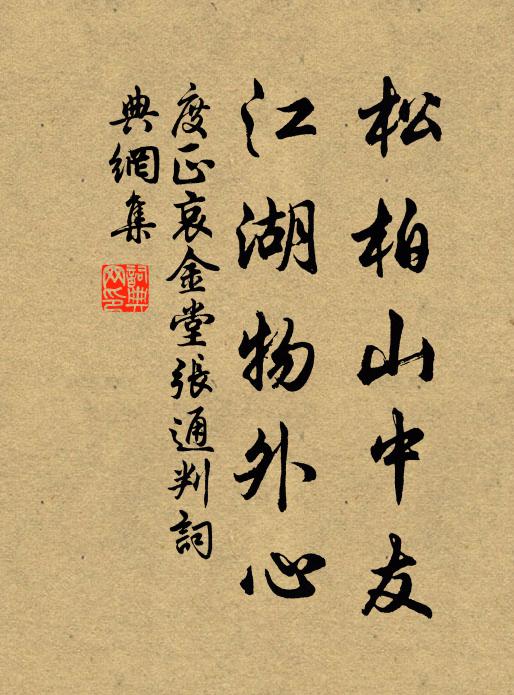 松柏山中友
江湖物外心
度正哀金堂張通判詞
典網集
詞典
网印